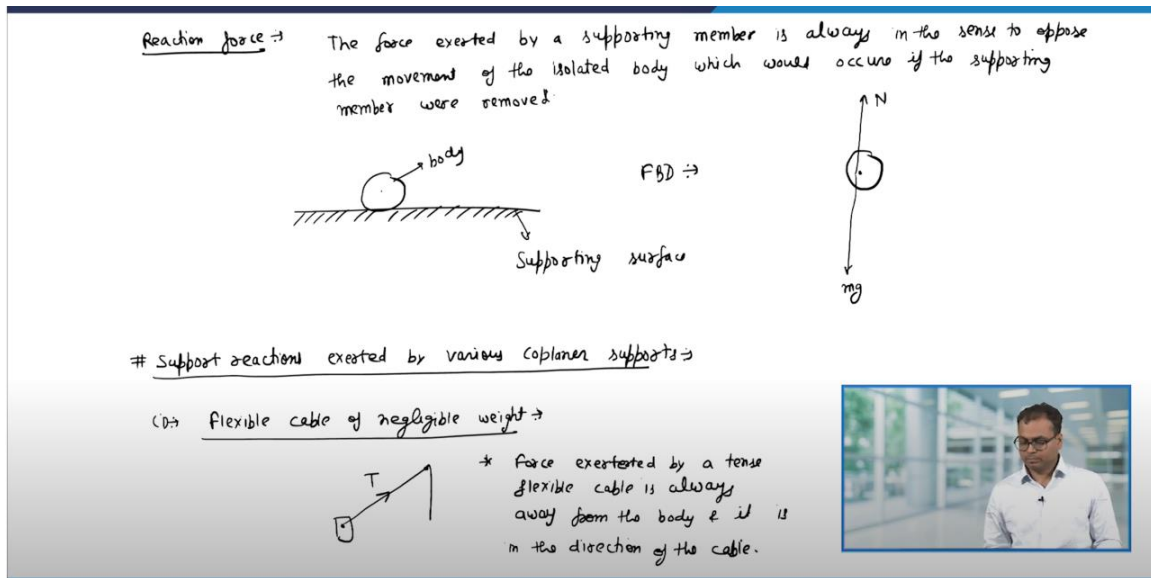 Reaction force → The force exerted by a supporting member is always in the sense to oppose
the movement of the isolated body which would occure if the supporting
member were removed.
N
body
FBD →
Supporting surface
mg
# Support reactions exerted by various Coplaner supports →
(1)→ flexible cable of negligible weight →
T
* Force exerted by a tense
flexible cable is always
away from the body & it is
in the direction of the cable.